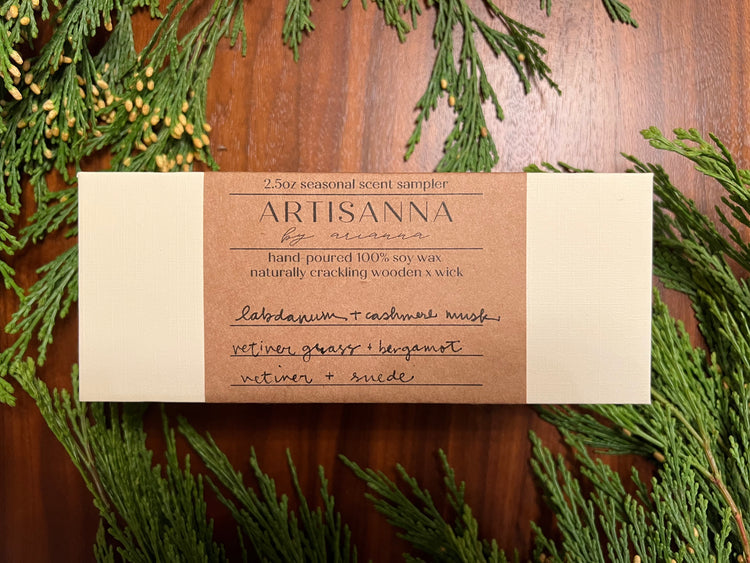 2.5oz seasonal scent sampler
ARTISANNA
by arianna
hand-poured 100% soy wax
naturally crackling wooden x wick
labdanum + cashmere musk
vetiver grass + bergamot
vetiver + suede